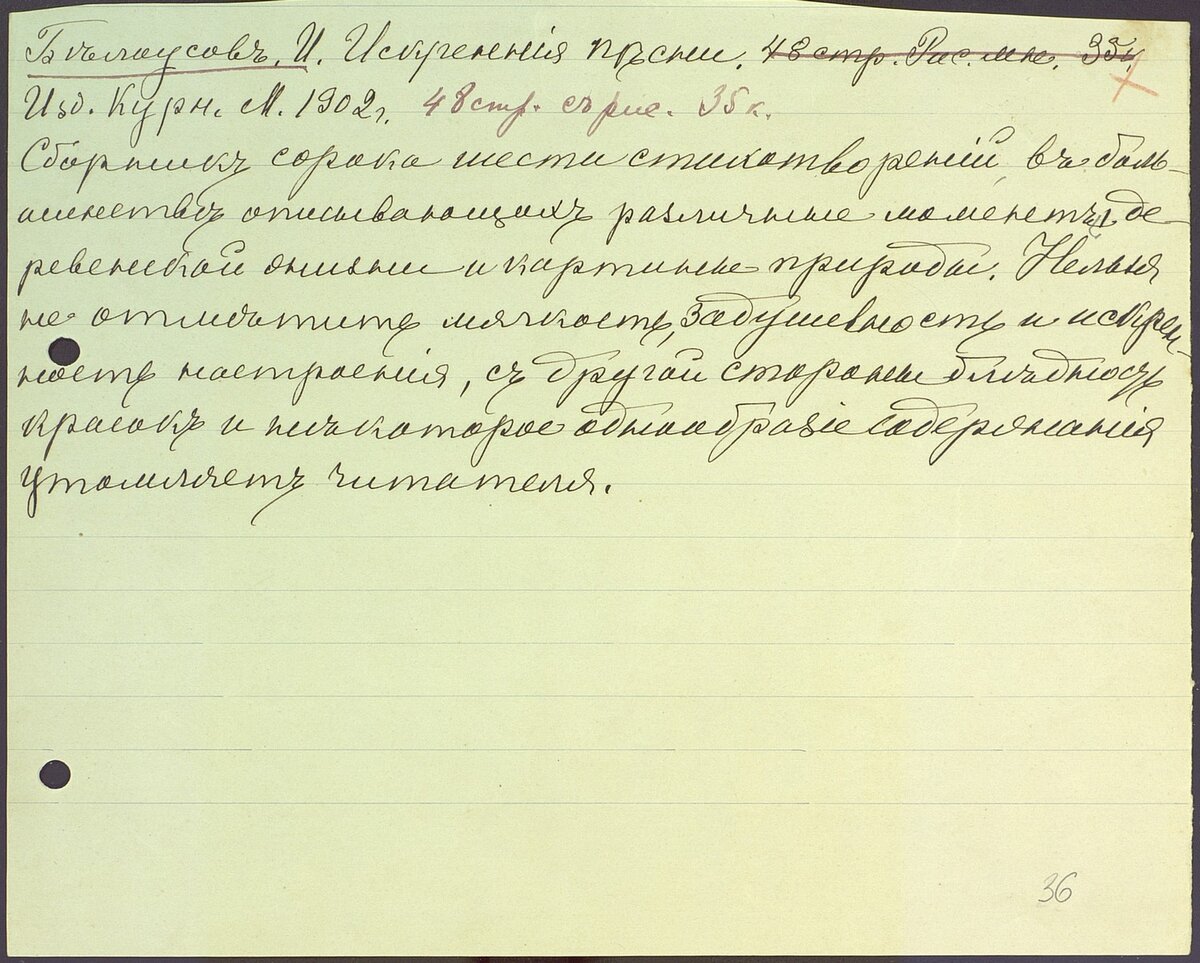 Бѣлоусовъ, И. Искреннія пѣсни. 48 стр. Рис. мн. 35 к.
Изд. Курн. М. 1902 г. 48 стр. съ рис. 35 к.
Сборникъ сорока шести стихотвореній, въ боль-
шинствѣ описывающихъ различные моменты де-
ревенской жизни и картины природы. Нельзя
не отмѣтить мягкость, задушевность и искрен-
ность настроенія, съ другой стороны блѣдность
красокъ и нѣкоторое однообразіе содержанія
утомляетъ читателя.
36